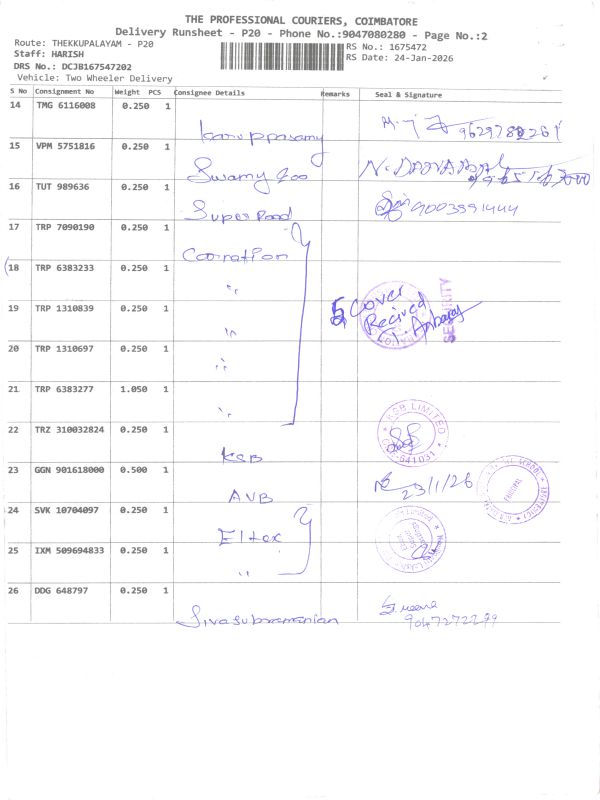 THE PROFESSIONAL COURIERS, COIMBATORE
Delivery Runsheet - P20 - Phone No.:9047080280 - Page No.:2
Route: THEKKUPALAYAM - P20
Staff: HARISH
DRS No.: DCJB167547202
Vehicle: Two Wheeler Delivery
RS No.: 1675472
RS Date: 24-Jan-2026
S No Consignment No Weight PCS Consignee Details Remarks Seal & Signature
14 TMG 6116008 0.250 1 Karuppasamy
15 VPM 5751816 0.250 1 Swamy
16 TUT 989636 0.250 1 Super Food 9003991444
17 TRP 7090190 0.250 1 Coronation
18 TRP 6383233 0.250 1 "
19 TRP 1310839 0.250 1 "
5 Cover
Recived
SECURITY
20 TRP 1310697 0.250 1 "
21 TRP 6383277 1.050 1 "
22 TRZ 310032824 0.250 1 KSB
KSB LIMITED
641031
23 GGN 901618000 0.500 1 AVB 23/1/26
PRINCIPAL
24 SVK 10704097 0.250 1 Eltex
25 IXM 509694833 0.250 1 "
26 DDG 648797 0.250 1 Sivasubramanian
9047272299